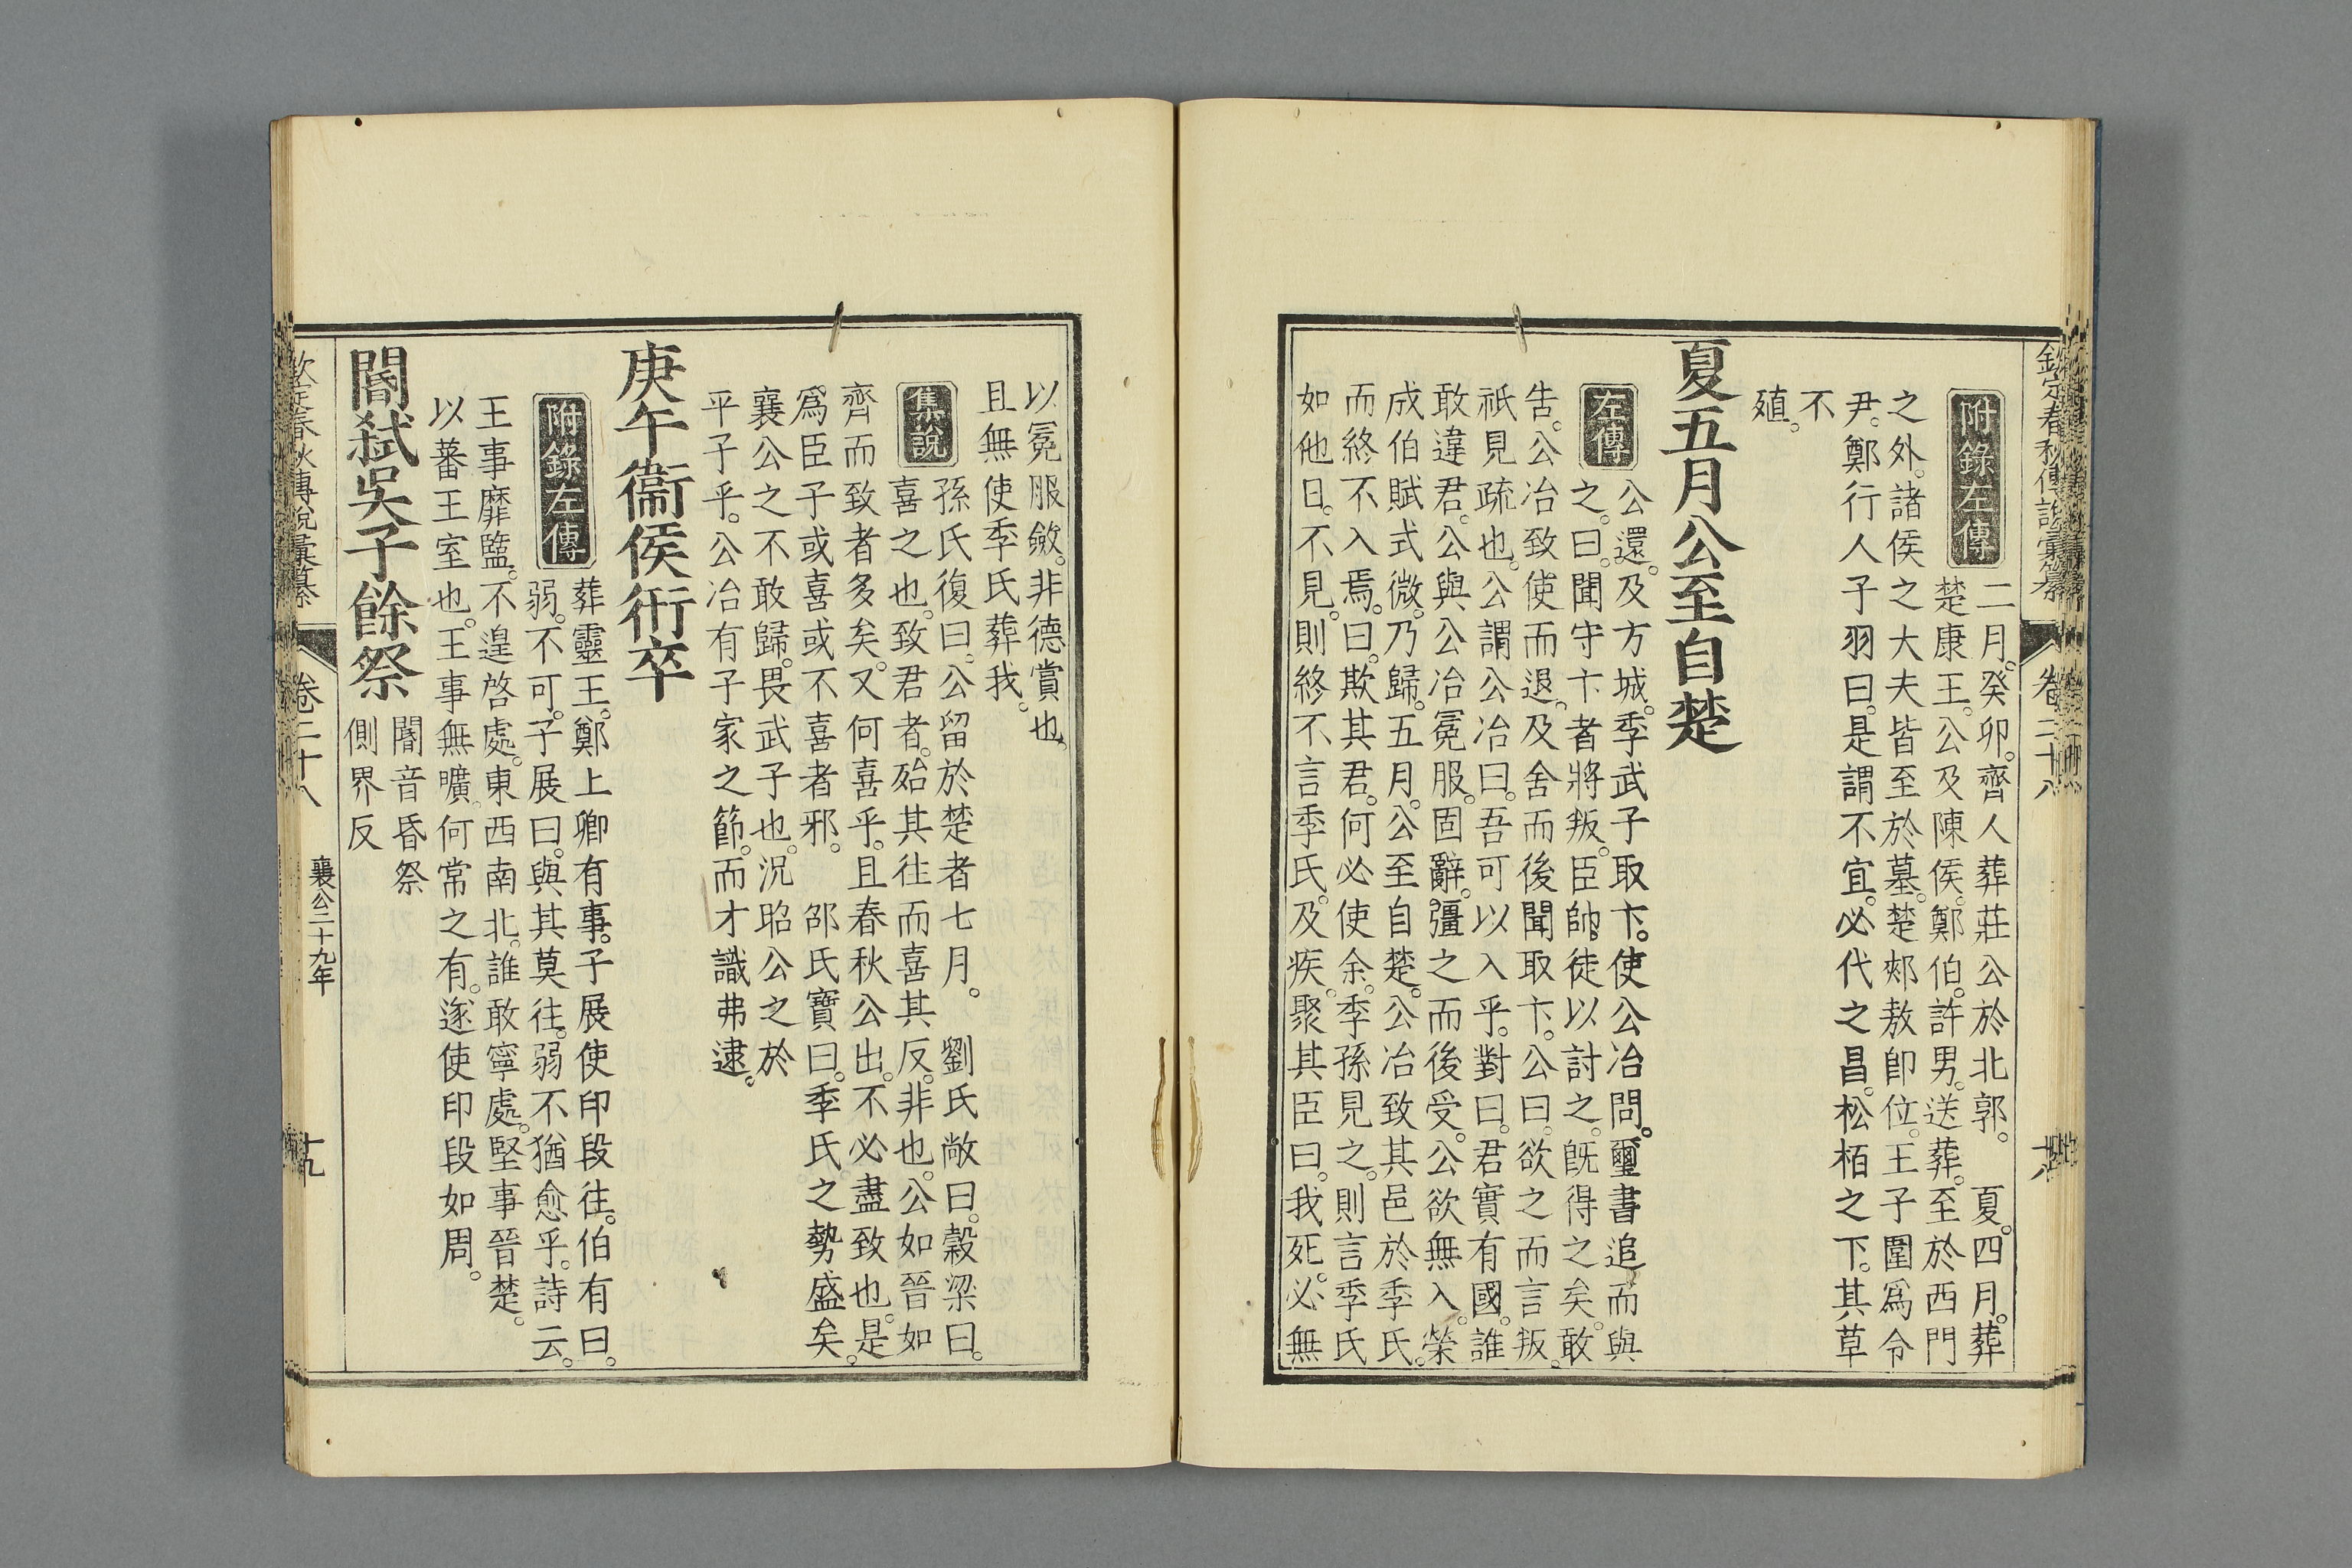 欽定春秋傳說彙纂
卷二十八
附錄左傳
二月。癸卯。齊人葬莊公於北郭。夏。四月。葬
楚康王。公及陳侯。鄭伯。許男。送葬。至於西門
之外。諸侯之大夫皆至於墓。楚郟敖卽位。王子圍爲令
尹。鄭行人子羽曰。是謂不宜。必代之昌。松栢之下。其草
不
殖。
夏五月公至自楚
左傳
公還。及方城。季武子取卞。使公冶問。璽書追而與
之。曰。聞守卞者將叛。臣帥徒以討之。旣得之矣。敢
告。公冶致使而退。及舍而後聞取卞。公曰。欲之而言叛。
祇見疏也。公謂公冶曰。吾可以入乎。對曰。君實有國。誰
敢違君。公與公冶冕服。固辭。彊之而後受。公欲無入。榮
成伯賦式微。乃歸。五月。公至自楚。公冶致其邑於季氏。
而終不入焉。曰。欺其君。何必使余。季孫見之。則言季氏
如他日。不見。則終不言季氏。及疾。聚其臣曰。我死。必無
以冕服斂。非德賞也。
且無使季氏葬我。
集說
孫氏復曰。公留於楚者七月。劉氏敞曰。穀梁曰。
喜之也。致君者。殆其往而喜其反。非也。公如晉如
齊而致者多矣。又何喜乎。且春秋公出。不必盡致也。是
爲臣子或喜或不喜者邪。邵氏寶曰。季氏之勢盛矣。
襄公之不敢歸。畏武子也。況昭公之於
平子乎。公冶有子家之節。而才識弗逮。
庚午衞侯衎卒
附錄左傳
葬靈王。鄭上卿有事。子展使印段往。伯有曰。
弱。不可。子展曰。與其莫往。弱不猶愈乎。詩云。
王事靡盬。不遑啓處。東西南北。誰敢寧處。堅事晉楚。
以蕃王室也。王事無曠。何常之有。遂使印段如周。
閽弒吳子餘祭
閽音昏祭
側界反
欽定春秋傳說彙纂
卷二十八
襄公二十九年
十九